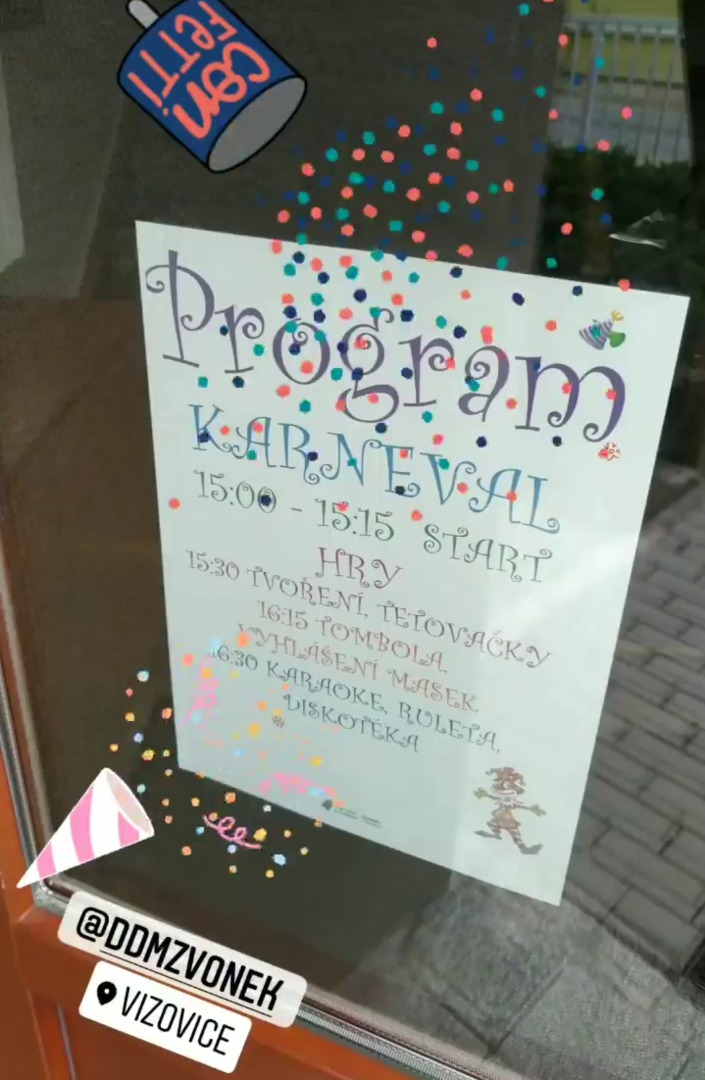 CON
FETTI
Program
KARNEVAL
15:00 - 15:15 START
HRY
15:30 TVOŘENÍ, TETOVAČKY
16:15 TOMBOLA,
VYHLÁŠENÍ MASEK
16:30 KARAOKE, RULETA,
DISKOTÉKA
@DDMZVONEK
VIZOVICE